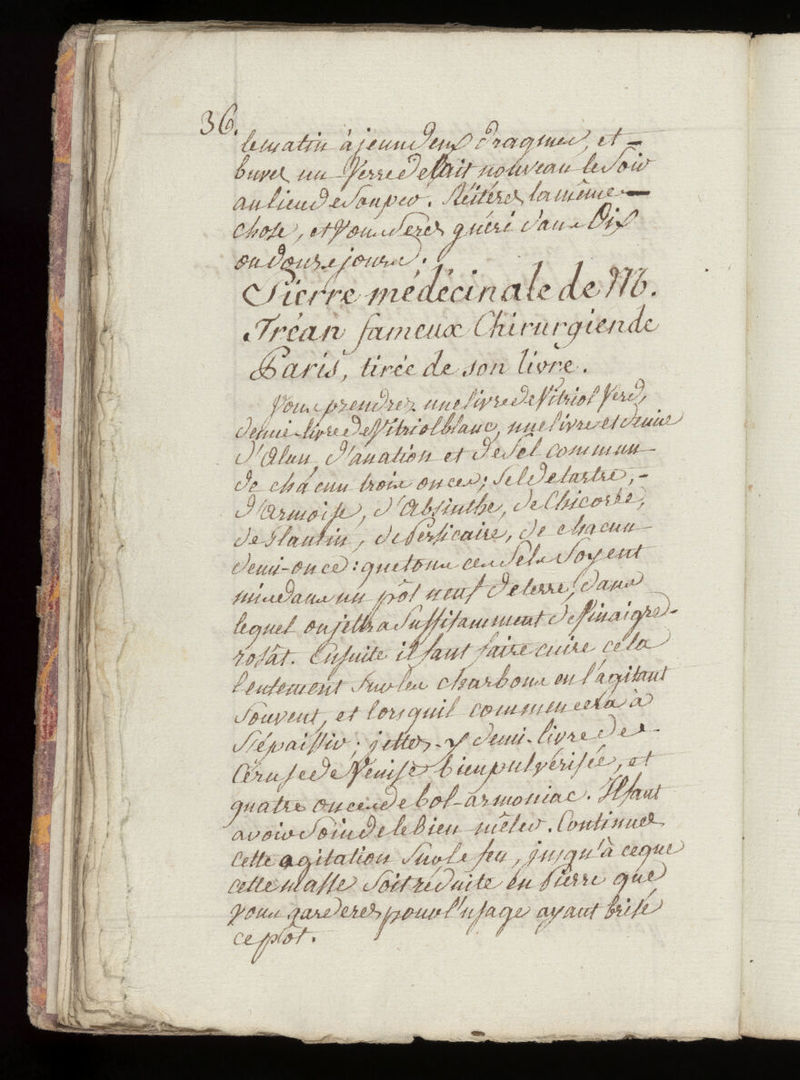 36.
le matin à jeun deux dragmes, et
buvez un verre de lait nouveau le Soir
au lieu de Souper. Réiterez la même
chose, et vous serez guéri dans Dix
ou douze jours.
Pierre médécinale de M.
Tréan fameux Chirurgien de
Paris, tirée de son livre.
Vous prendrez une livre de Vitriol Verd,
demie-livre de Vitriol blanc, une livre et demie
d'Alun d'anation et de Sel commun
de chacun trois onces; Sel de tartre,
d'Armoise, d'Absinthe, de Chicorée,
de Plantin, de Persicaire, de chacun
demi-once: que tous ces Sels Soyent
mis dans un pôt neuf de terre, dans
lequel on jettra Suffisamment de Vinaigre-
rosât. Ensuite il faut faire cuire cela
lentement Sur les charbons en l'agitant
Souvent, et lorsquil commencera à
S'épaissir; jettez-y demi-livre de
Céruse de Venise bien pulvérisée, et
quatre onces de bol-armoniac. Il faut
avoir Soin de le bien mêler. Continuez
cette agitation Sur le feu, jusqu'à ceque
cette masse Soit réduite en Pierre que
vous garderez pour l'usage ayant brisé
ce pôt.